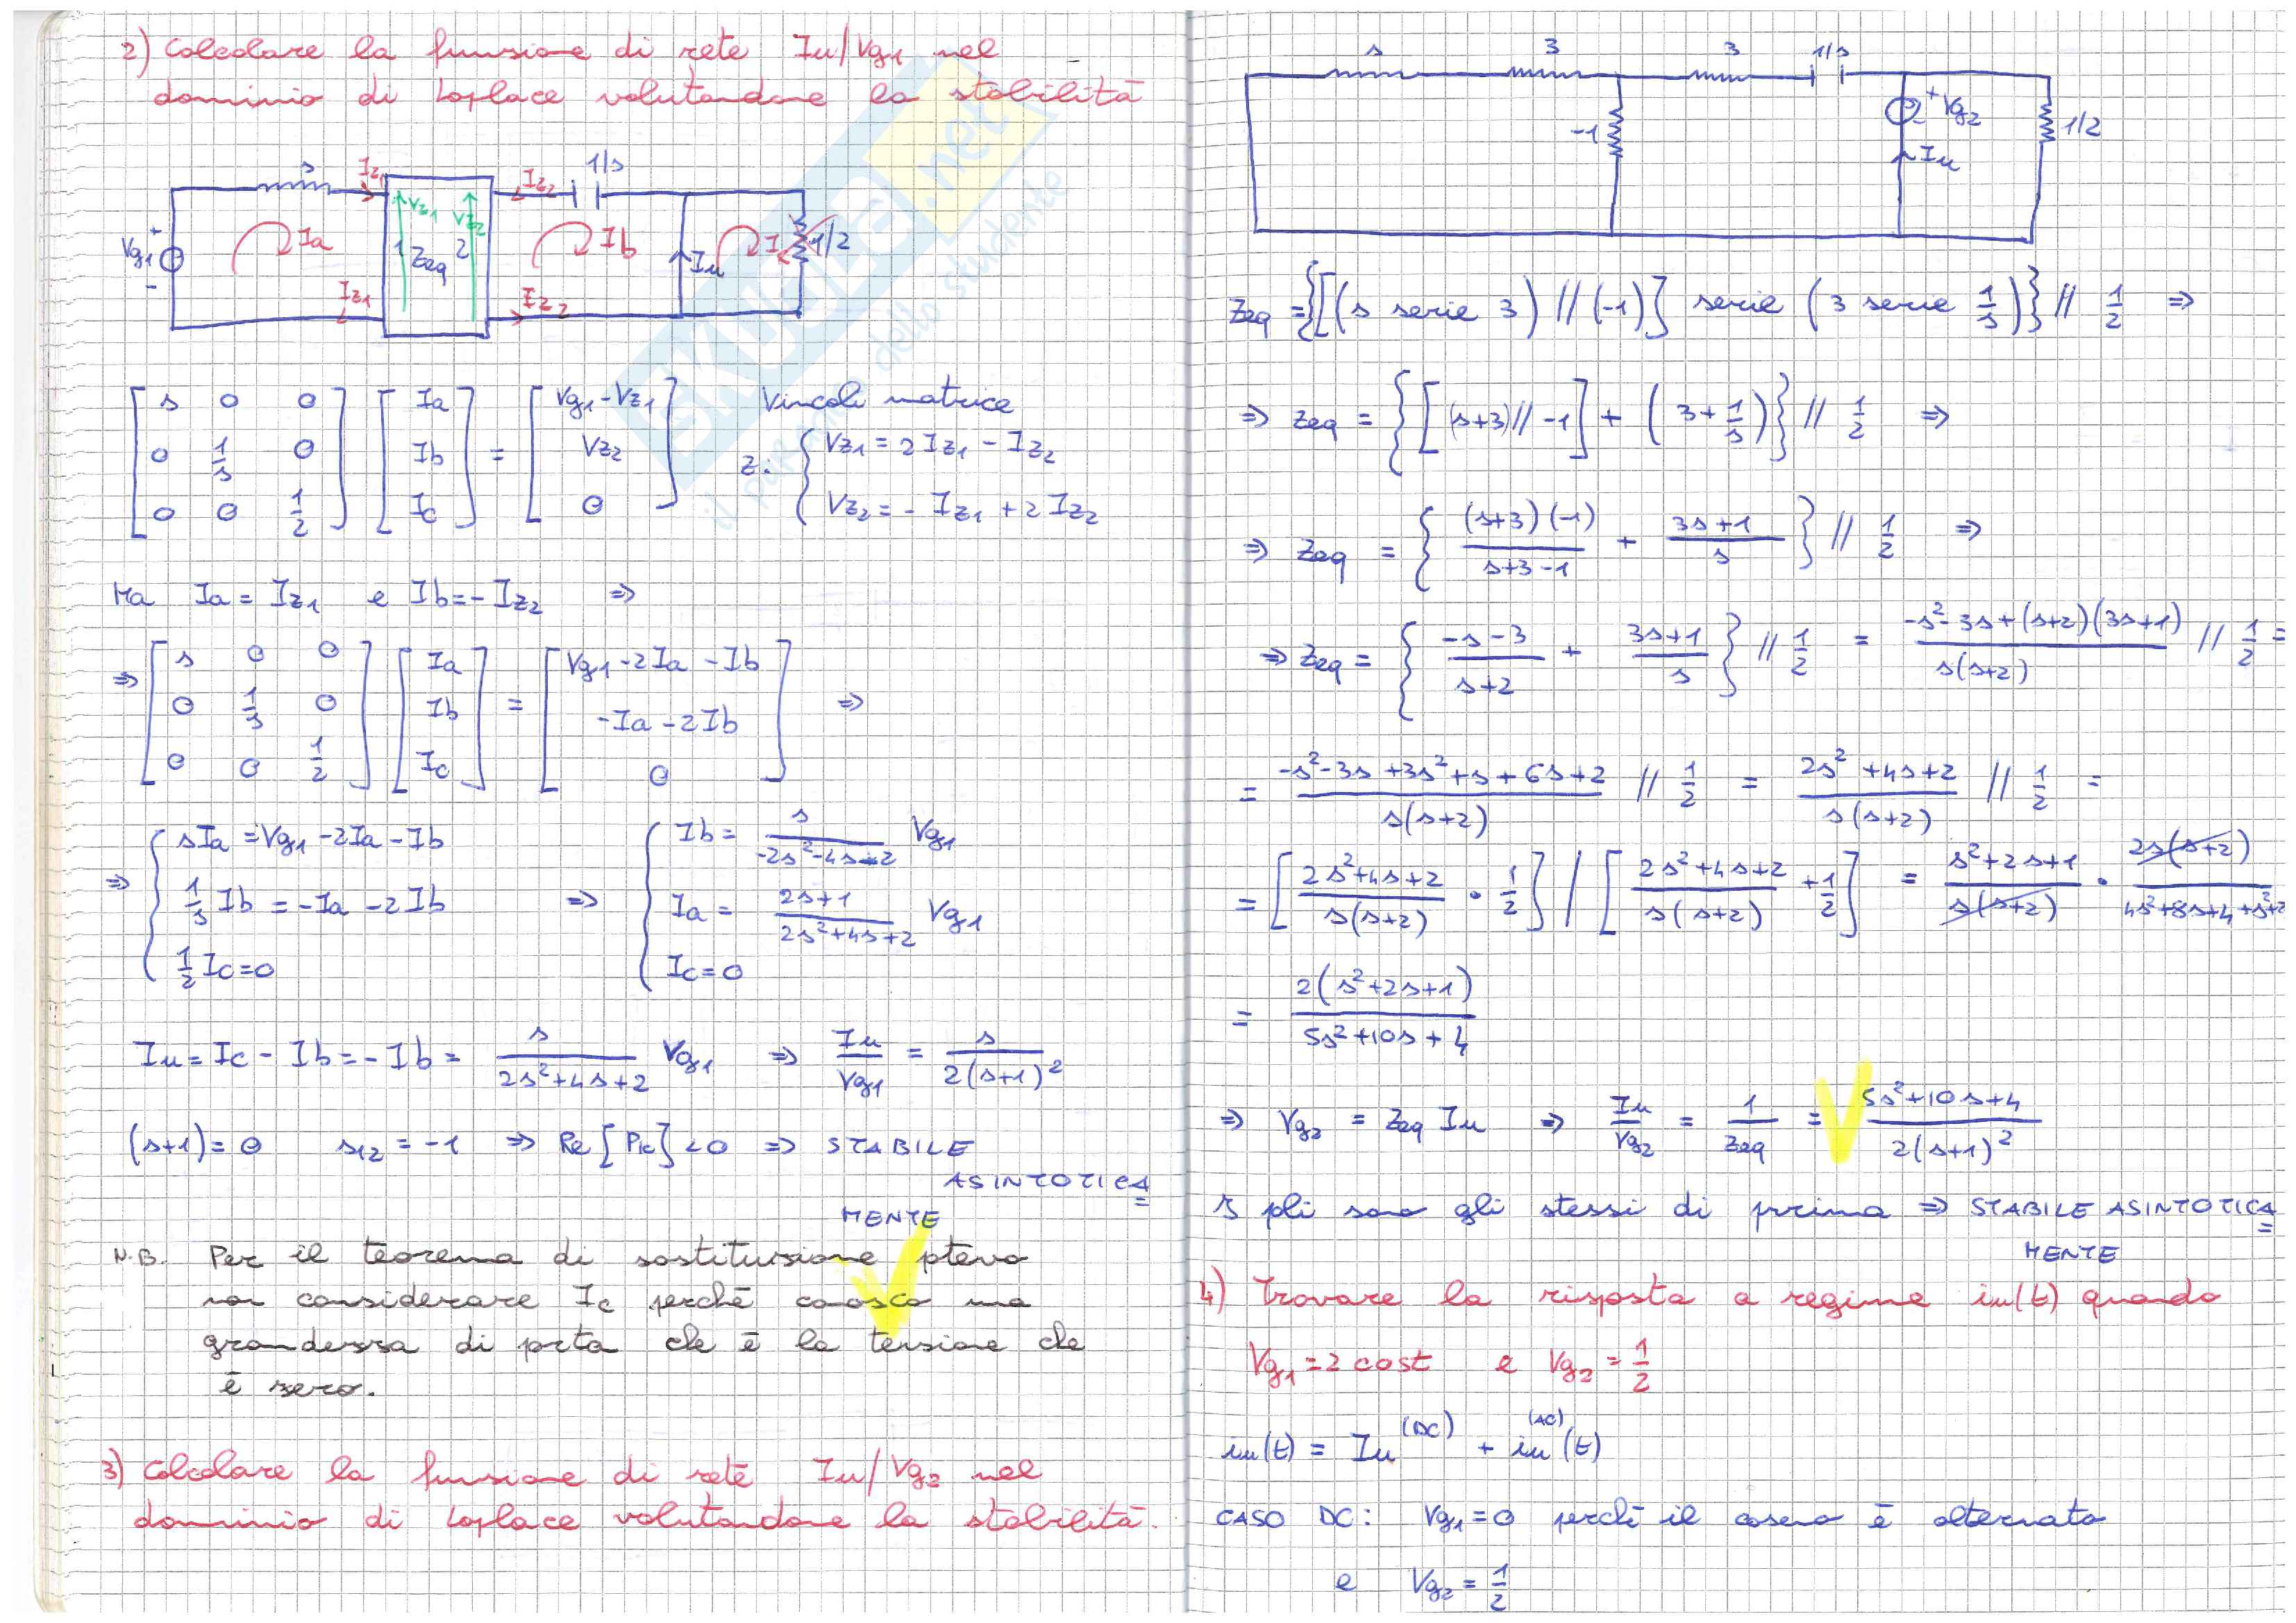 2) Calcolare la funzione di rete Iu/Vg1 nel
dominio di Laplace valutandone la stabilità
Vg1 + - s Iz1 Ia Iz1 Vz1 1 Zeq 2 Vz2 Iz2 Iz2 1/s Ib Iu I 1/2
[s 0 0; 0 1/s 0; 0 0 1/2] [Ia; Ib; Ic] = [Vg1-Vz1; Vz2; 0]
Vincoli matrice
Z: { Vz1 = 2Iz1 - Iz2
Vz2 = - Iz1 + 2Iz2
Ma Ia = Iz1 e Ib = -Iz2 ⇒
⇒ [s 0 0; 0 1/s 0; 0 0 1/2] [Ia; Ib; Ic] = [Vg1-2Ia-Ib; -Ia-2Ib; 0] ⇒
⇒ { sIa = Vg1 -2Ia -Ib
1/s Ib = -Ia -2Ib
1/2 Ic = 0
⇒ { Ib = s/(-2s²-4s-2) Vg1
Ia = (2s+1)/(2s²+4s+2) Vg1
Ic = 0
Iu = Ic - Ib = -Ib = s/(2s²+4s+2) Vg1 ⇒ Iu/Vg1 = s/(2(s+1)²
(s+1) = 0 s12 = -1 ⇒ Re[Pk]<0 ⇒ STABILE
ASINTOTICA=
MENTE
N.B. Per il teorema di sostituzione ptevo
non considerare Ic perchè conosco una
grandezza di porta che è la tensione che
è zero.
3) Calcolare la funzione di rete Iu/Vg2 nel
dominio di Laplace valutandone la stabilità.
s 3 3 1/s -1 + - Vg2 Iu 1/2
Zeq = {[(s serie 3) // (-1)] serie (3 serie 1/s)} // 1/2 ⇒
⇒ Zeq = {[(s+3) // -1] + (3+1/s)} // 1/2 ⇒
⇒ Zeq = {(s+3)(-1)/(s+3-1) + (3s+1)/s} // 1/2 ⇒
⇒ Zeq = {(-s-3)/(s+2) + (3s+1)/s} // 1/2 = (-s²-3s+(s+2)(3s+1))/(s(s+2)) // 1/2 =
= (-s²-3s+3s²+s+6s+2)/(s(s+2)) // 1/2 = (2s²+4s+2)/(s(s+2)) // 1/2 =
= [(2s²+4s+2)/(s(s+2)) · 1/2] / [(2s²+4s+2)/(s(s+2)) + 1/2] = (s²+2s+1)/(s(s+2)) · 2s(s+2)/(4s²+8s+4+s²+2
= 2(s²+2s+1)/(5s²+10s+4)
⇒ Vg2 = Zeq Iu ⇒ Iu/Vg2 = 1/Zeq = (5s²+10s+4)/(2(s+1)²)
I pli sono gli stessi di prima ⇒ STABILE ASINTOTICA=
MENTE
4) Trovare la risposta a regime iu(t) quando
Vg1 = 2 cost e Vg2 = 1/2
iu(t) = Iu(DC) + iu(AC)(t)
CASO DC: Vg1 = 0 perchè il coseno è alternato
e Vg2 = 1/2
SKUOLA.net
il paradiso dello studente